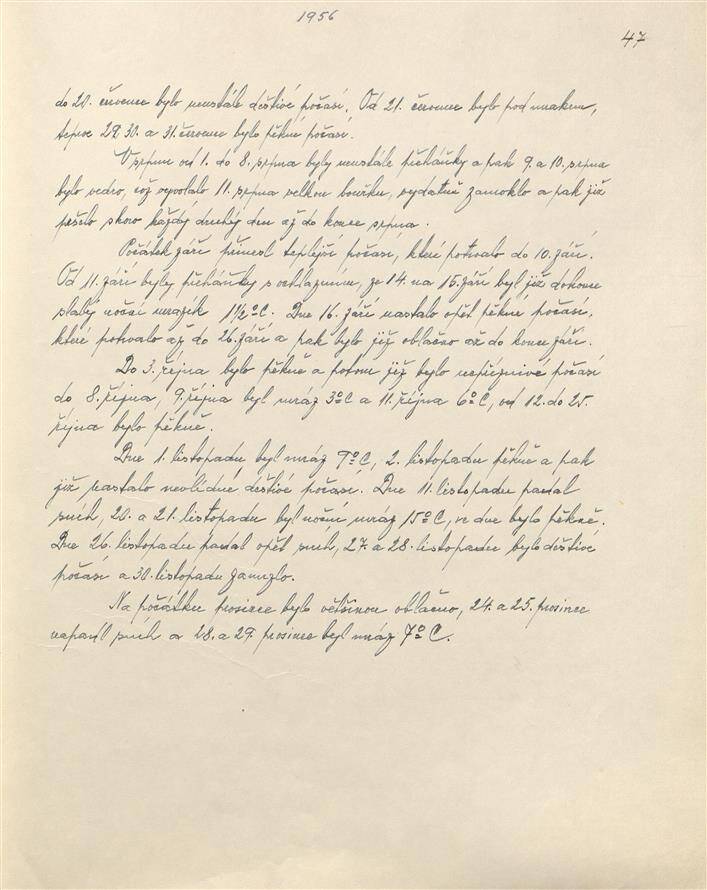 1956
47
do 20. července bylo neustále deštivé počasí. Od 21. července bylo pod mrakem,
teprve 29. 30. a 31. července bylo pěkné počasí.
V srpnu od 1. do 8. srpna byly neustále přeháňky a pak 9. a 10. srpna
bylo vedro, což vyvolalo 11. srpna velkou bouřku, vydatně zamoklo a pak již
pršelo skoro každý druhý den až do konce srpna.
Počátek září přinesl teplejší počasí, které potrvalo do 10. září.
Od 11. září byly přeháňky s ochlazením, ze 14. na 15. září byl již dokonce
slabý noční mrazík 1½°C. Dne 16. září nastalo opět pěkné počasí,
které potrvalo až do 26. září a pak bylo již oblačno až do konce září.
Do 3. října bylo pěkně a potom již bylo nepříznivé počasí
do 8. října, 9. října byl mráz 3°C a 11. října 6°C, od 12. do 25.
října bylo pěkně.
Dne 1. listopadu byl mráz 9°C, 2. listopadu pěkně a pak
již nastalo nevlídné deštivé počasí. Dne 11. listopadu padal
sníh, 20. a 21. listopadu byl noční mráz 15°C, ve dne bylo pěkně.
Dne 26. listopadu padal opět sníh, 27. a 28. listopadu bylo deštivé
počasí a 30. listopadu zamrzlo.
Na počátku prosince bylo většinou oblačno, 24. a 25. prosince
napadl sníh a 28. a 29. prosince byl mráz 7°C.